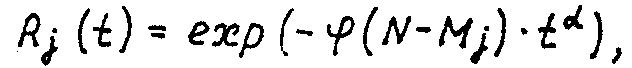 R_j (t) = exp (-φ(N-M_j)·t^α),